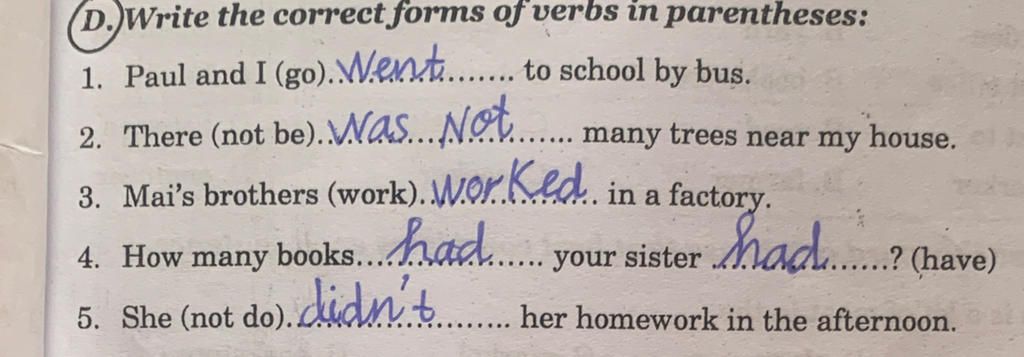 D. Write the correct forms of verbs in parentheses:
1. Paul and I (go). Went ........ to school by bus.
2. There (not be).. Was... Not ....... many trees near my house.
3. Mai's brothers (work).. worked .. in a factory.
4. How many books... had ..... your sister ... had ......? (have)
5. She (not do).. didn't ....... her homework in the afternoon.